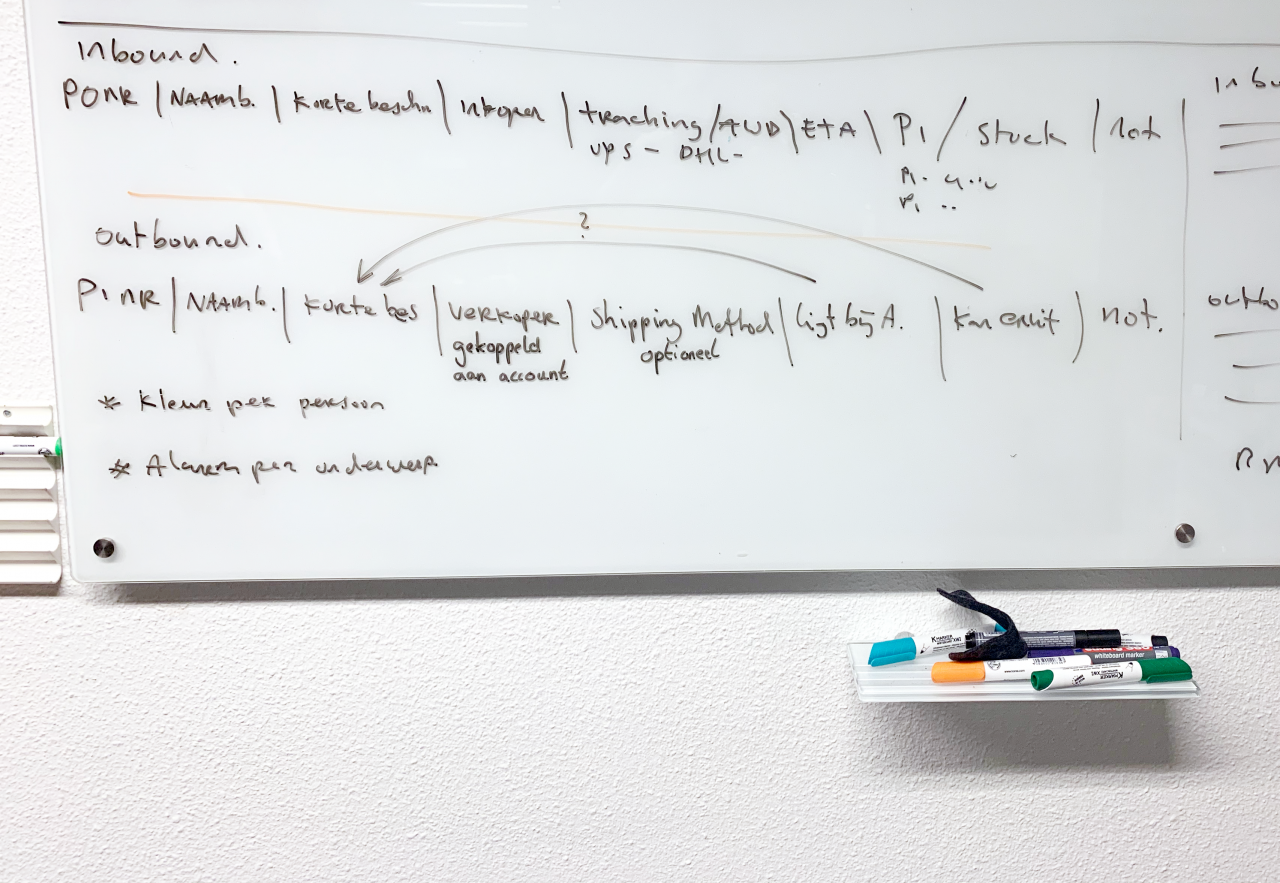 Inbound.
PONR | NAAMb. | Korte beschr | Inkoper | tracking / AWB | ETA | PI / Stuck | not
UPS - DHL -
PI.
PI ..
?
outbound.
PI NR | NAAMb. | Korte bes | VERKOPER | Shipping Method | ligt bij A. | Kan eruit | not.
gekoppeld optioneel
aan account
* Kleur per persoon
* Alarm per onderwerp.
Inbo
outbo
K MARKER
whiteboard marker
K MARKER